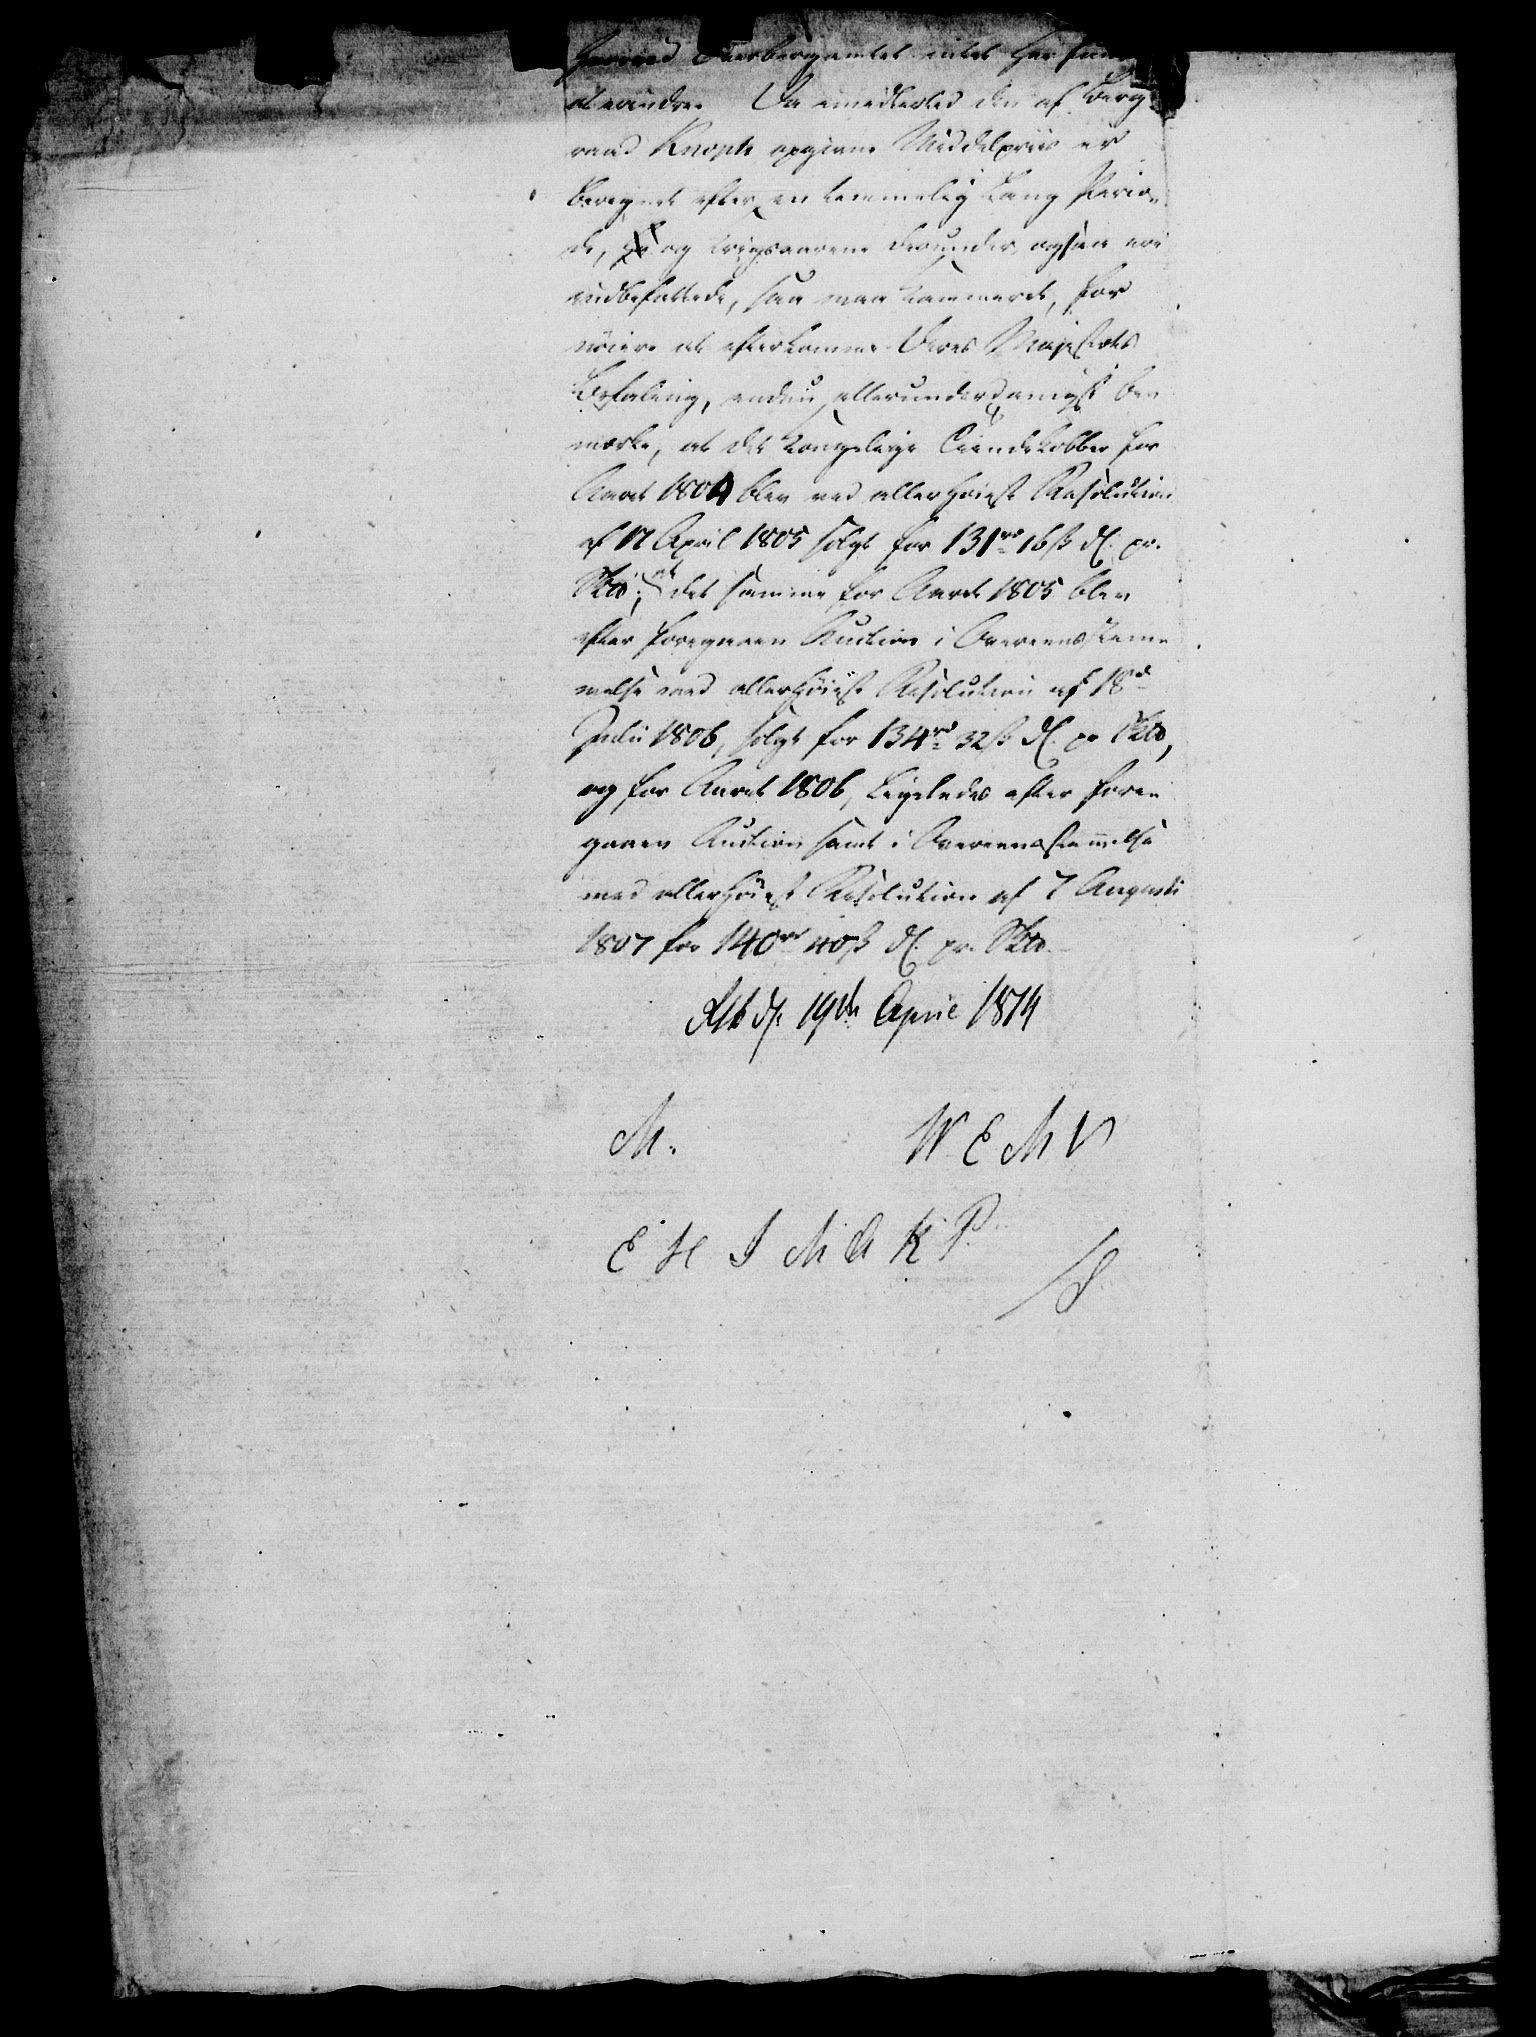 hvorved Overbergamtet intet har fundet
at erindre. Da imidlertid den af Berg-
raad Knoph opgivne Middelpriis er
beregnet efter en temmelig lang Perio-
de, og Krigsaarene derunder ogsaa ere
indbefattede, saa maa Kammeret, for
nöiere at efterkomme Deres Majestets
Befaling, endnu allerunderdanigst be-
mærke, at det kongelige Tiendekobber for
Aaret 1804 blev ved allerhöieste Resolution
af 17 April 1805 solgt for 131 rd 16 ß d. pr.
Sk℔; at det samme for Aaret 1805 blev
efter foregaaen Auction i Overeensstem-
melse med allerhöieste Resolution af 18d
Julii 1806, solgt for 134 rd 32 ß d. pr Sk℔,
og for Aaret 1806, ligeledes efter fore-
gaaen Auction samt i Overeensstemmelse
med allerhöieste Resolution af 7 Augusti
1807 for 140 rd 40 ß d. pr. Sk℔.
19de April 1814
M. W E M V
E H J M A K P.